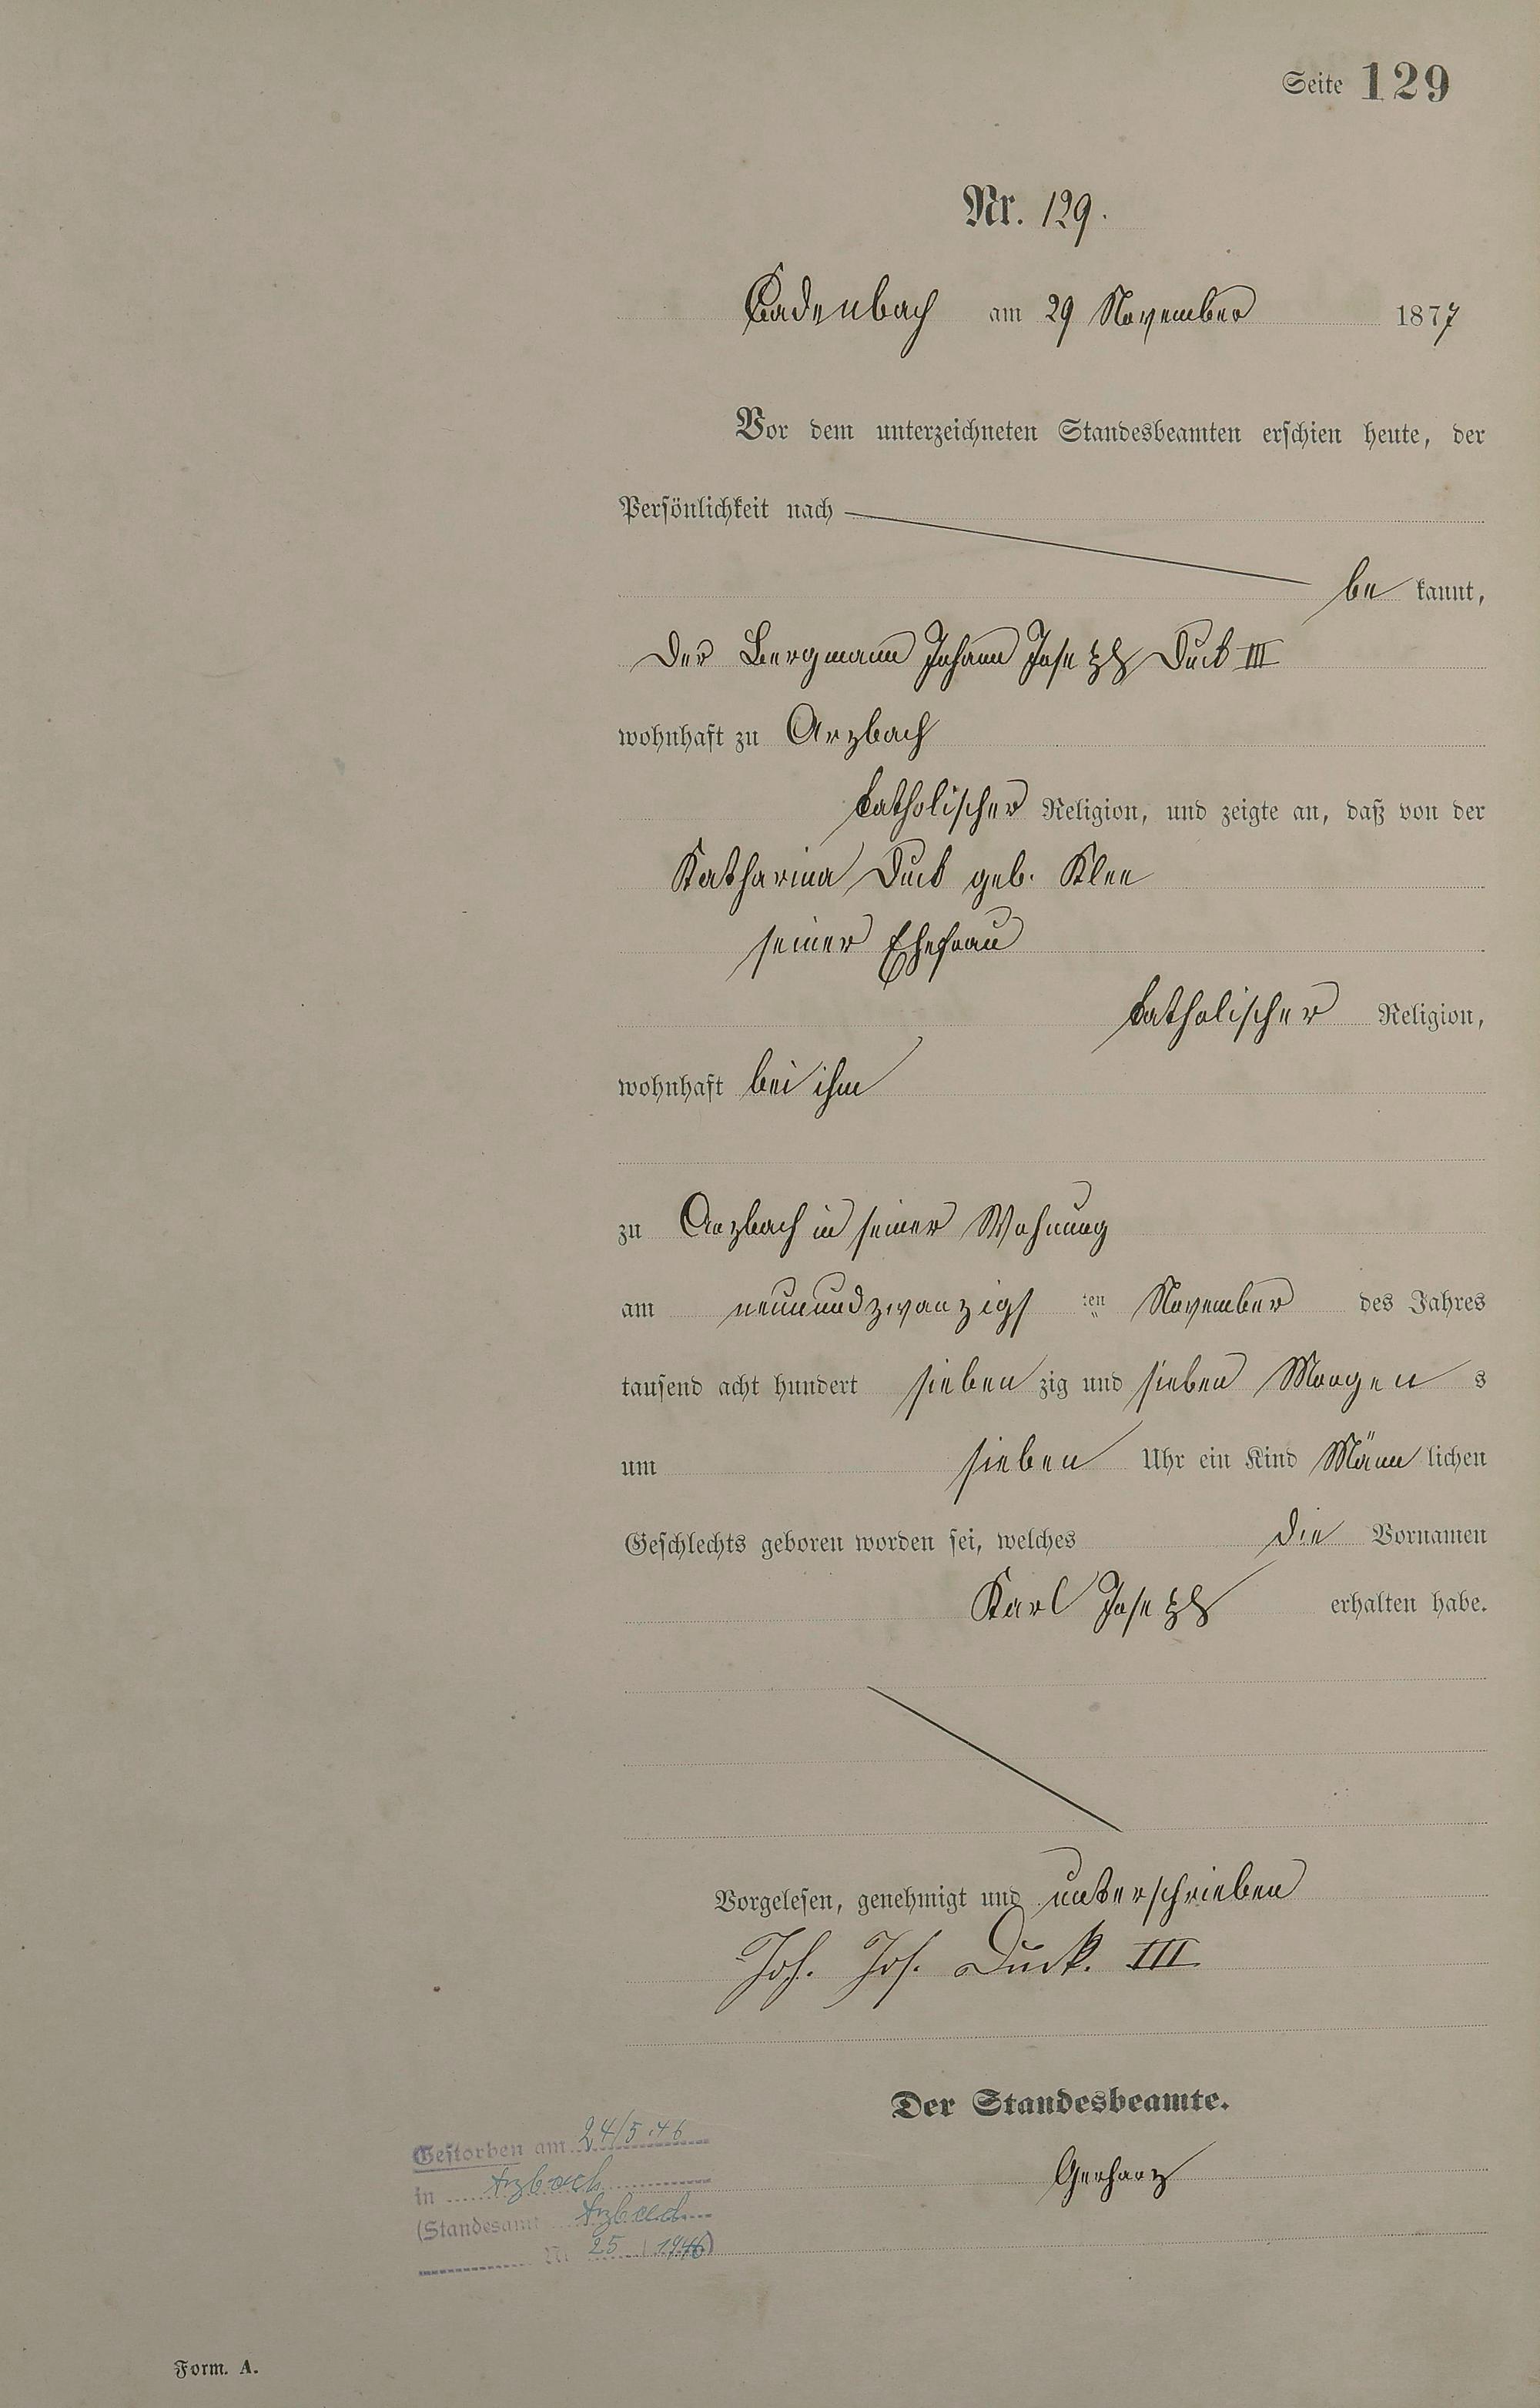 Seite 129
Nr. 129.
Cadenbach am 29 November 1877
Vor dem unterzeichneten Standesbeamten erschien heute, der
Persönlichkeit nach
be kannt,
der Bergmann Johann Joseph Duck III
wohnhaft zu Arzbach
katholischer Religion, und zeigte an, daß von der
Katharina Duck geb. Klee
seiner Ehefrau
katholischer Religion,
wohnhaft bei ihm
zu Arzbach in seiner Wohnung
am neunundzwanzigs ten November des Jahres
tausend acht hundert sieben zig und sieben Morgen s
um sieben Uhr ein Kind Männ lichen
Geschlechts geboren worden sei, welches die Vornamen
Karl Joseph erhalten habe.
Vorgelesen, genehmigt und unterschrieben
Joh. Jos. Duck. III
Der Standesbeamte.
Gerharz
Gestorben am 24/5 46
in Arzbach
(Standesamt Arzbach
Nr 25 / 1946)
Form. A.